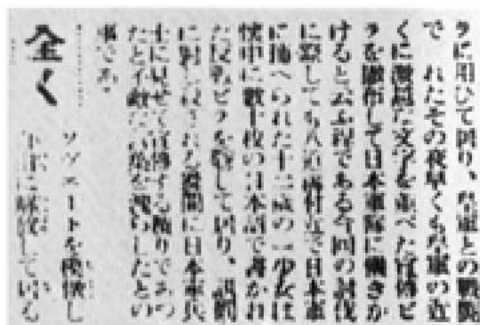 ラに用ひて居り、皇軍との戰鬪
で れたその夜早くも皇軍の近
くに激越な文字を並べた宣傳ビ
ラを撒布して日本軍隊に働きか
けると云ふ程である今回の討伐
に際しても八道溝村近で日本軍
に捕へられた十二歳の一少女は
懷中に數十枚の日本語で書かれ
た反戰ビラを隱して居り、訊問
に對し殺される瞬間に日本軍兵
士に見せて宣傳する積りであつ
たと不敵な言葉を殘らしたとの
事であ
全く
ソヴエートを後
に解放して居る